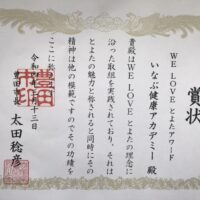 賞状
WE LOVE とよたアワード
いなぶ健康アカデミー 殿
貴殿はWE LOVE とよたの理念に
沿った取組を実践されており、それは
とよたの魅力と称されると同時にその
精神は他の模範ですのでその功績を
ここに称
令和
十三日
豊田市長
太田稔彦